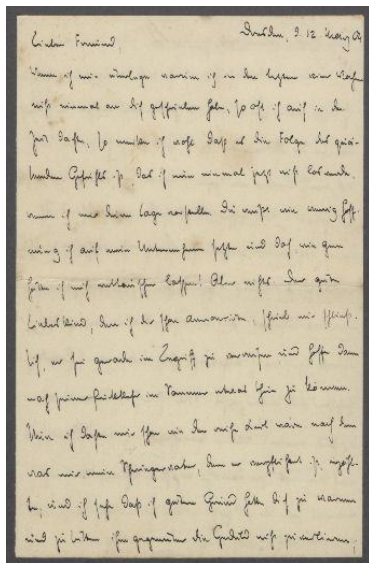 Dresden, d 12 März 04
Lieber Freund,
Wenn ich mir überlege warum ich in den letzten vier Wochen
nicht einmal an dich geschrieben habe, so oft ich auch in der
Zeit dachte, so merke ich wohl daß es die Folge des
Gefühles ist, das ich nun einmal jetzt nicht los werde,
wenn ich mir deine Lage vorstelle. Du weißt wie wenig Hoff-
nung ich auf mein Unternehmen setzte und doch wie gern
hätte ich mich lassen! Aber nichts. Der gute
Liebeskind, den ich dir schon, schrieb mir schließ-
lich, er sei gerade im Begriff zu verreisen und hoffe dann
nach seiner Rückkehr im Sommer etwas thun zu können.
Nun ich dachte mir schon wie das nicht viel wäre nach dem
was mir mein Schwiegervater, dem er ist, erzähl-
te, und ich sehe daß ich guten Grund hatte dich zu warnen
und zu bitten ihm gegenüber die Geduld nicht zu verlieren,